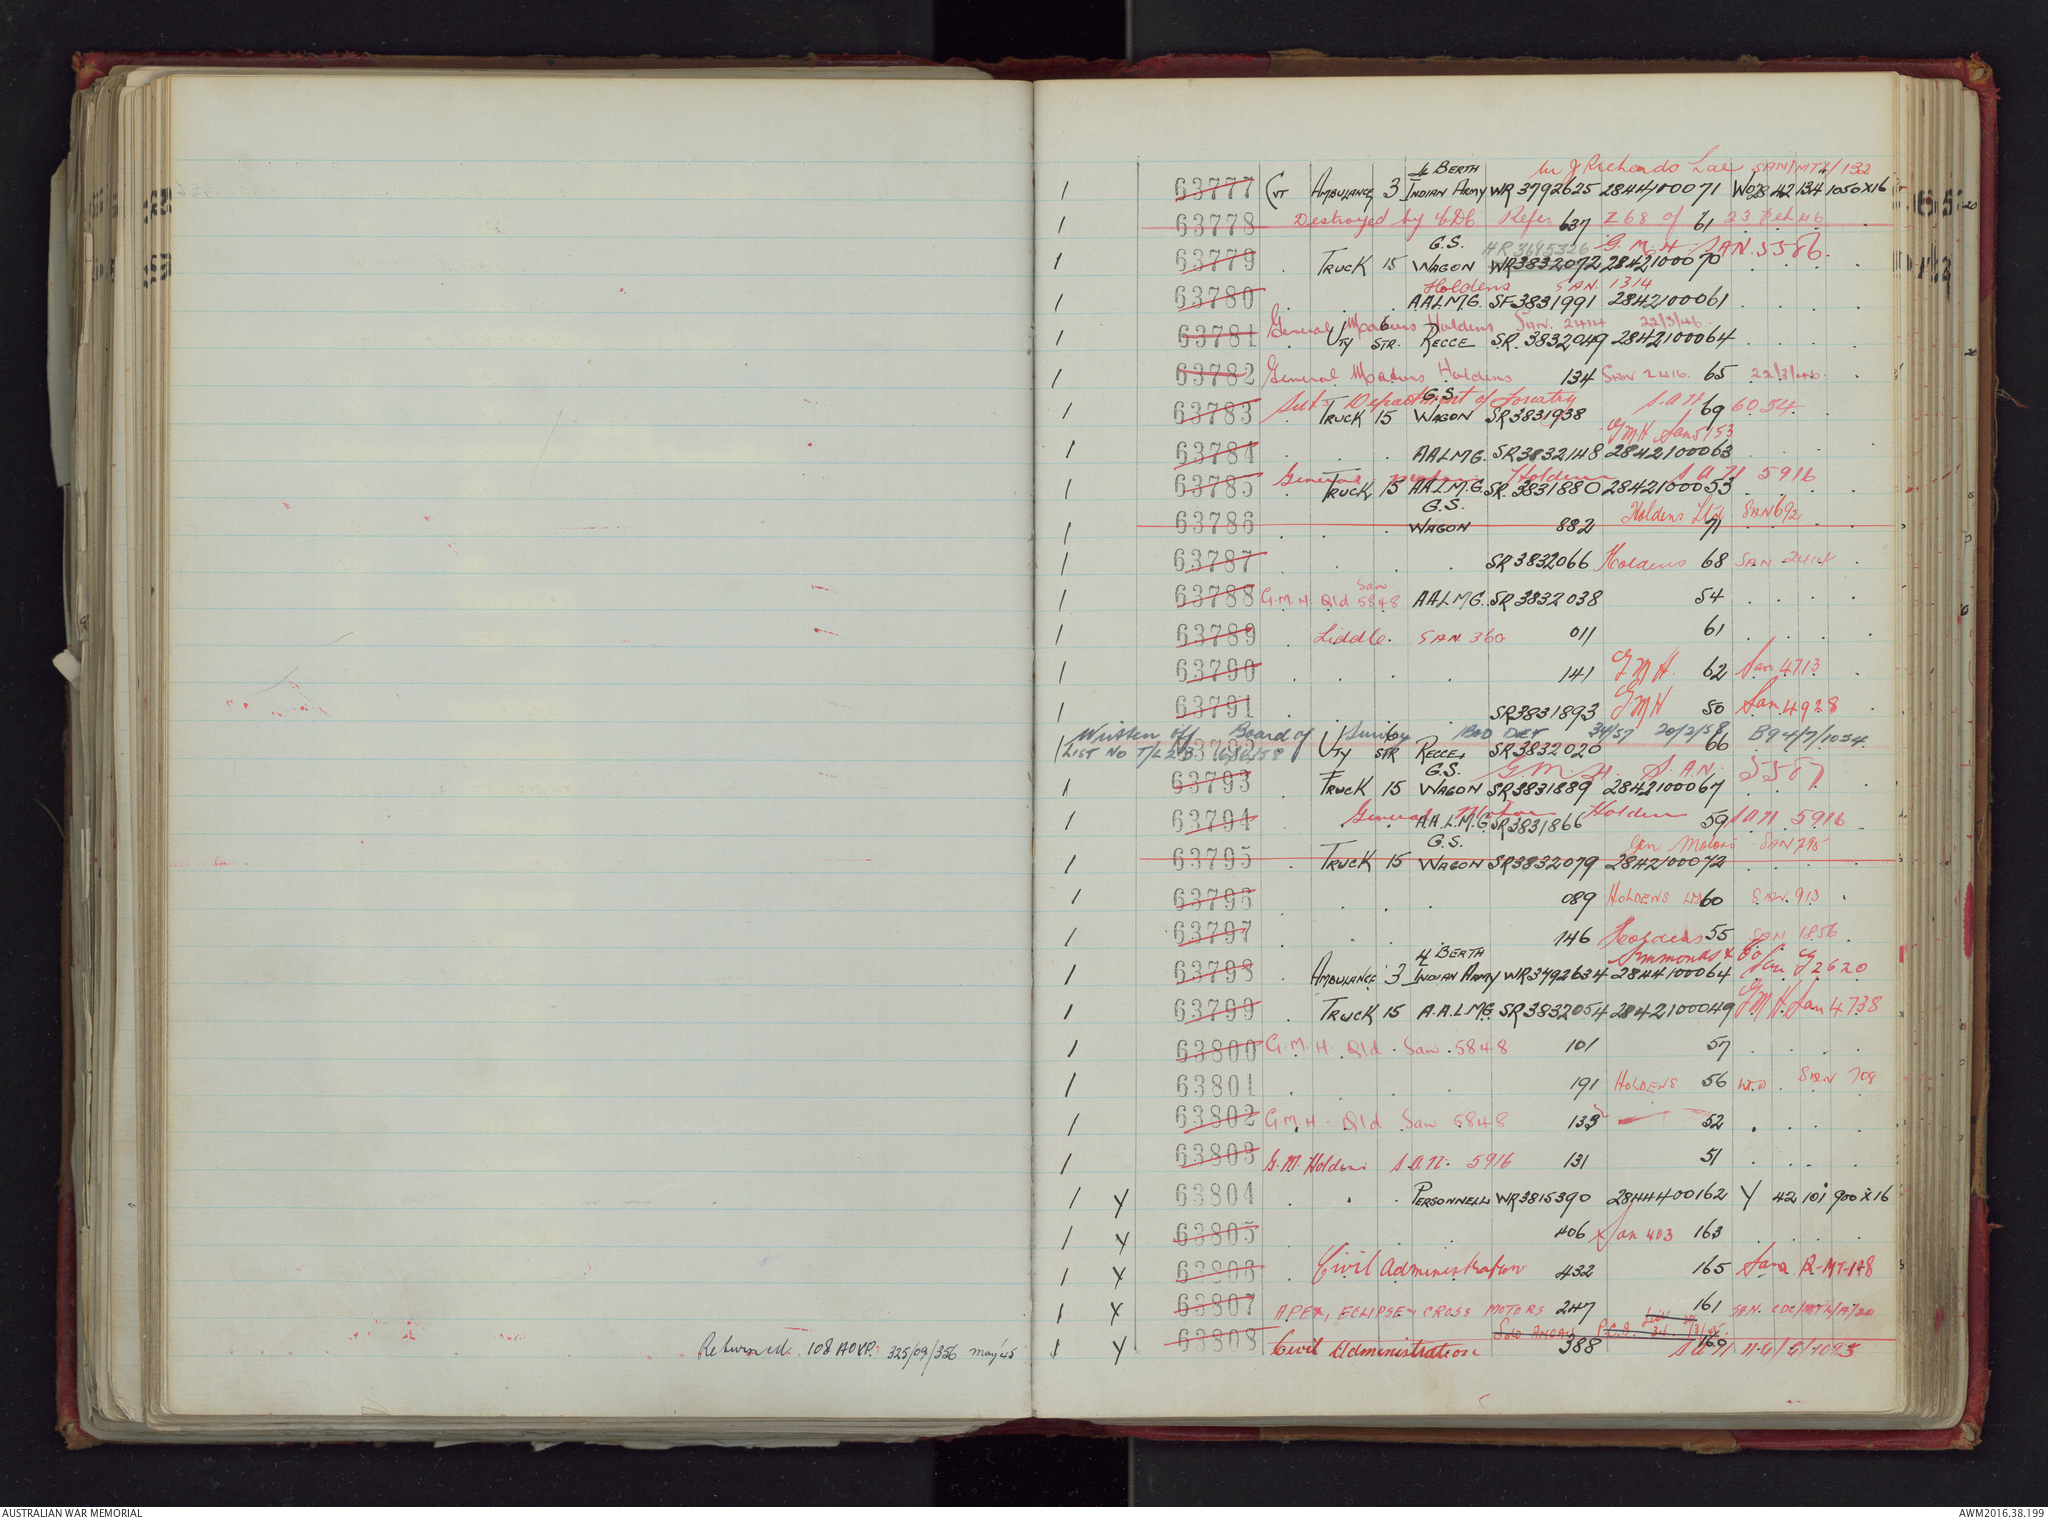 4 BERTH W J Richards Lae SAN/MTX/132
1 63777 Cvt AMBULANCE 3 INDIAN ARMY WR 3792625 2844100071 42 134 1050X16
1 63778 Destroyed by CDC Refer 637 Z68 of 61 23 Feb 46
G.S. HR3645326 G.M.H. SAN. 5586.
1 63779 TRUCK 15 WAGON WR3832072 2842100070
Holdens SAN. 1314
1 63780 A.A.L.M.G. SF3831991 2842100061
General Motors Holdens SAN. 2414 22/3/46
1 63781 UTY 6 STR. RECCE SR.3832049 2842100064
1 63782 General Motors Holdens 134 SAN 2416. 65 22/3/46.
G.S.
Department of Forestry S.A.N. 6034
1 63783 TRUCK 15 WAGON SR3831938 69
GMH San 5153
1 63784 A.A.L.M.G. SR3832148 2842100063
General Motors Holdens S.A.N 5916
1 63785 TRUCK 15 A.A.L.M.G. SR.3831880 2842100053
G.S. Holdens Ltd SAN 692
1 63786 WAGON 882 71
1 63787 SR3832066 Holdens 68 SAN 2414
San
1 63788 G.M.H. Qld 5848 A.A.L.M.G. SR3832038 54
1 63789 Liddle. SAN. 360 011 61
1 63790 141 GMH. 62 San 4713
1 63791 SR3831893 GMH 50 San 4928
Written off Board of Survey BOD DET 34/57 20/2/58 B94/7/1034
LIST NO T/L 28 6/6/58
1 63792 UTY 6 STR RECCE, SR3832020 66
G.S. G.M.H. S.A.N. 5587
1 63793 TRUCK 15 WAGON SR3831889 2842100067
General Motors Holden S.A.N. 5916
1 63794 A.A.L.M.G SR3831866 59
G.S. Gen Motors SAN 795
1 63795 TRUCK 15 WAGON SR3832079 2842100072
1 63796 089 HOLDENS LTD 60 SAN. 913
1 63797 146 Holdens 55 SAN 1856
4 BERTH Simmonds & Co.
1 63798 AMBULANCE 3 INDIAN ARMY WR3792634 2844100064 2620
1 63799 TRUCK 15 A.A.L.M.G. SR3832054 2842100049 GMH San 4738
1 63800 G.M.H. Qld. San. 5848 101 57
1 63801 191 HOLDENS 56 LTD SAN 708
1 63802 G.M.H. Qld San 5848 135 52
1 63803 G.M. Holdens S.A.N. 5916 131 51
1 Y 63804 PERSONNEL WR3815390 2844400162 Y 42 101 900X16
1 Y 63805 406 San 403 163
1 Y 63806 Civil Administration 432 165 San R-MT-178
1 X 63807 APEX, ECLIPSE & CROSS MOTORS 247 161 SAN.
SOLD ANGAU P.C.B. List 34
Returned 108 AOVP. 325/09/356 May '45 1 Y 63808 Civil Administration 388 169
AUSTRALIAN WAR MEMORIAL AWM2016.38.199